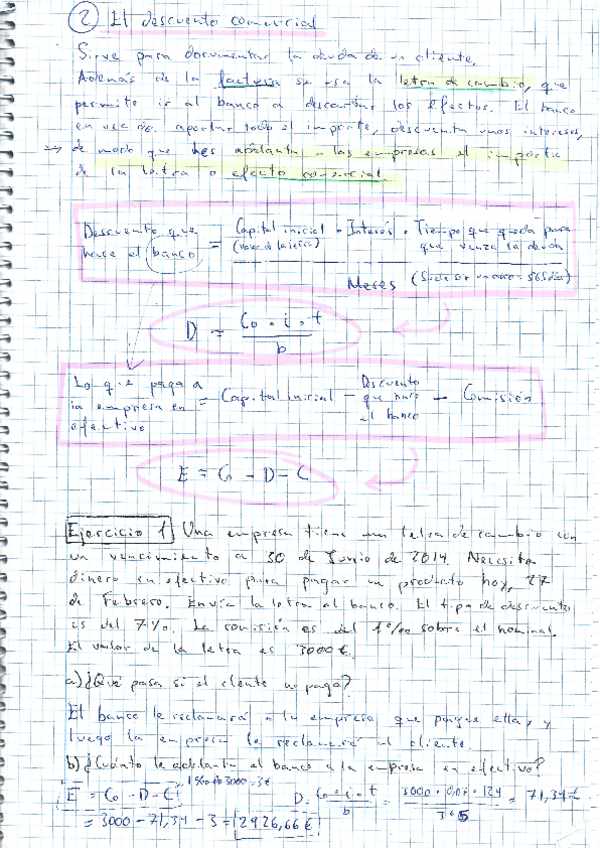 ② El descuento comercial
Sirve para documentar la deuda de un cliente.
Además de la factura se usa la letra de cambio, que
permite ir al banco a descontar los efectos. El banco
en vez de aportar todo el importe, descuenta unos intereses,
de modo que les adelanta a las empresas el importe
de la letra o efecto comercial.
Descuento que hace el banco = Capital inicial (valor de la letra) · Interés · Tiempo que queda para que venza la deuda
Meses (Suele ser un año = 365 días)
D = Co · i · t
b
Lo que paga a la empresa en efectivo = Capital inicial - Descuento que hace el banco - Comisión
E = Co - D - C
Ejercicio 1 Una empresa tiene una letra de cambio con
un vencimiento a 30 de Junio de 2014. Necesita
dinero en efectivo para pagar un producto hoy, 27
de Febrero. Envía la letra al banco. El tipo de descuento
es del 7%. La comisión es del 1‰ sobre el nominal.
El valor de la letra es 3000 €.
a) ¿Qué pasa si el cliente no paga?
El banco le reclamará a la empresa que pague ella, y
luego la empresa le reclamará al cliente.
b) ¿Cuánto le adelanta el banco a la empresa en efectivo?
1‰ de 3000 = 3€
E = Co - D - C
D = Co · i · t / b = 3000 · 0,07 · 124 / 365 = 71,34 €
= 3000 - 71,34 - 3 = 2926,66 €